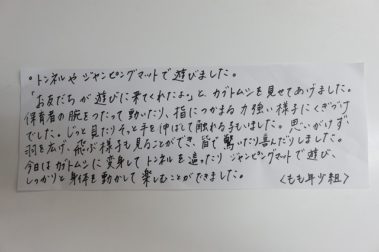 。トンネルや ジャンピングマットで遊びました。
「お友だちが遊びに来てくれたよ」と、カブトムシを見せてあげました。
保育者の腕をつたって動いたり、指につかまる力強い様子にくぎづけ
でした。じっと見たりそっと手を伸ばして触れる子もいました。思いがけず
羽を広げ、飛ぶ様子も見ることができ、皆で驚いたり喜んだりしました。
今日はカブトムシに変身してトンネルを這ったりジャンピングマットで遊び、
しっかりと身体を動かして楽しむことができました。 〈もも年少組〉